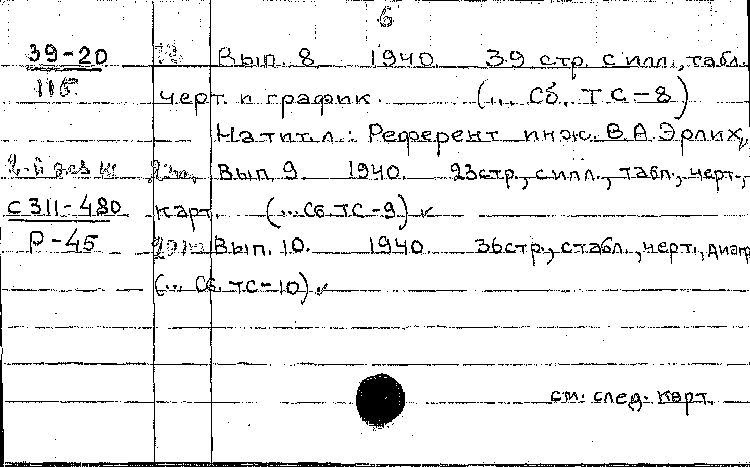 6
39-20 Вып. 8 1940. 39 стр. с илл., табл.
115 черт. и график. (... Сб. ТС-8)
На тит. л.: Референт инж. В.А. Эрлих,
Вып. 9. 1940. 23стр., с илл., табл., черт.,
С 311-480 карт. (...Сб. ТС-9) ✓
Р-45 Вып. 10. 1940. 36стр., с табл., черт., диагр
(... Сб. ТС-10) ✓
см. след. карт.